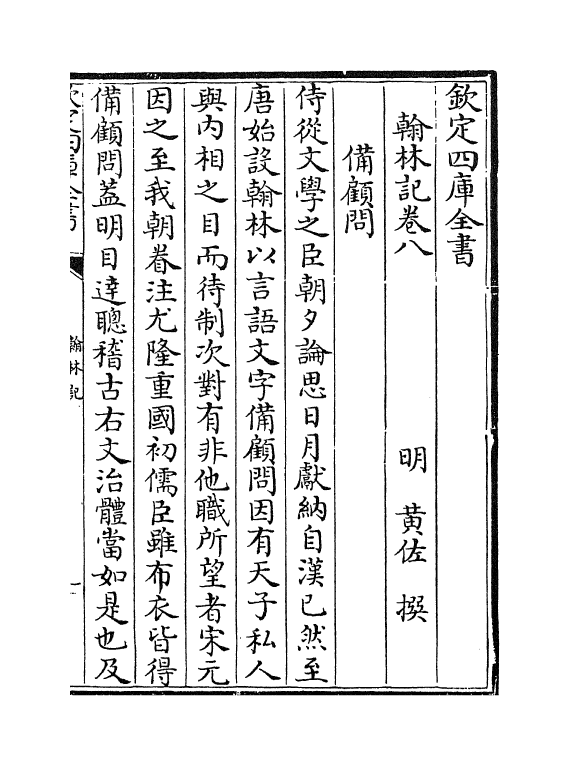 欽定四庫全書
翰林記卷八
明 黃佐 撰
備顧問
侍從文學之臣朝夕論思日月獻納自漢已然至
唐始設翰林以言語文字備顧問因有天子私人
與內相之目而待制次對有非他職所望者宋元
因之至我朝眷注尤隆重國初儒臣雖布衣皆得
備顧問蓋明目達聰稽古右文治體當如是也及
欽定四庫全書
翰林記
一